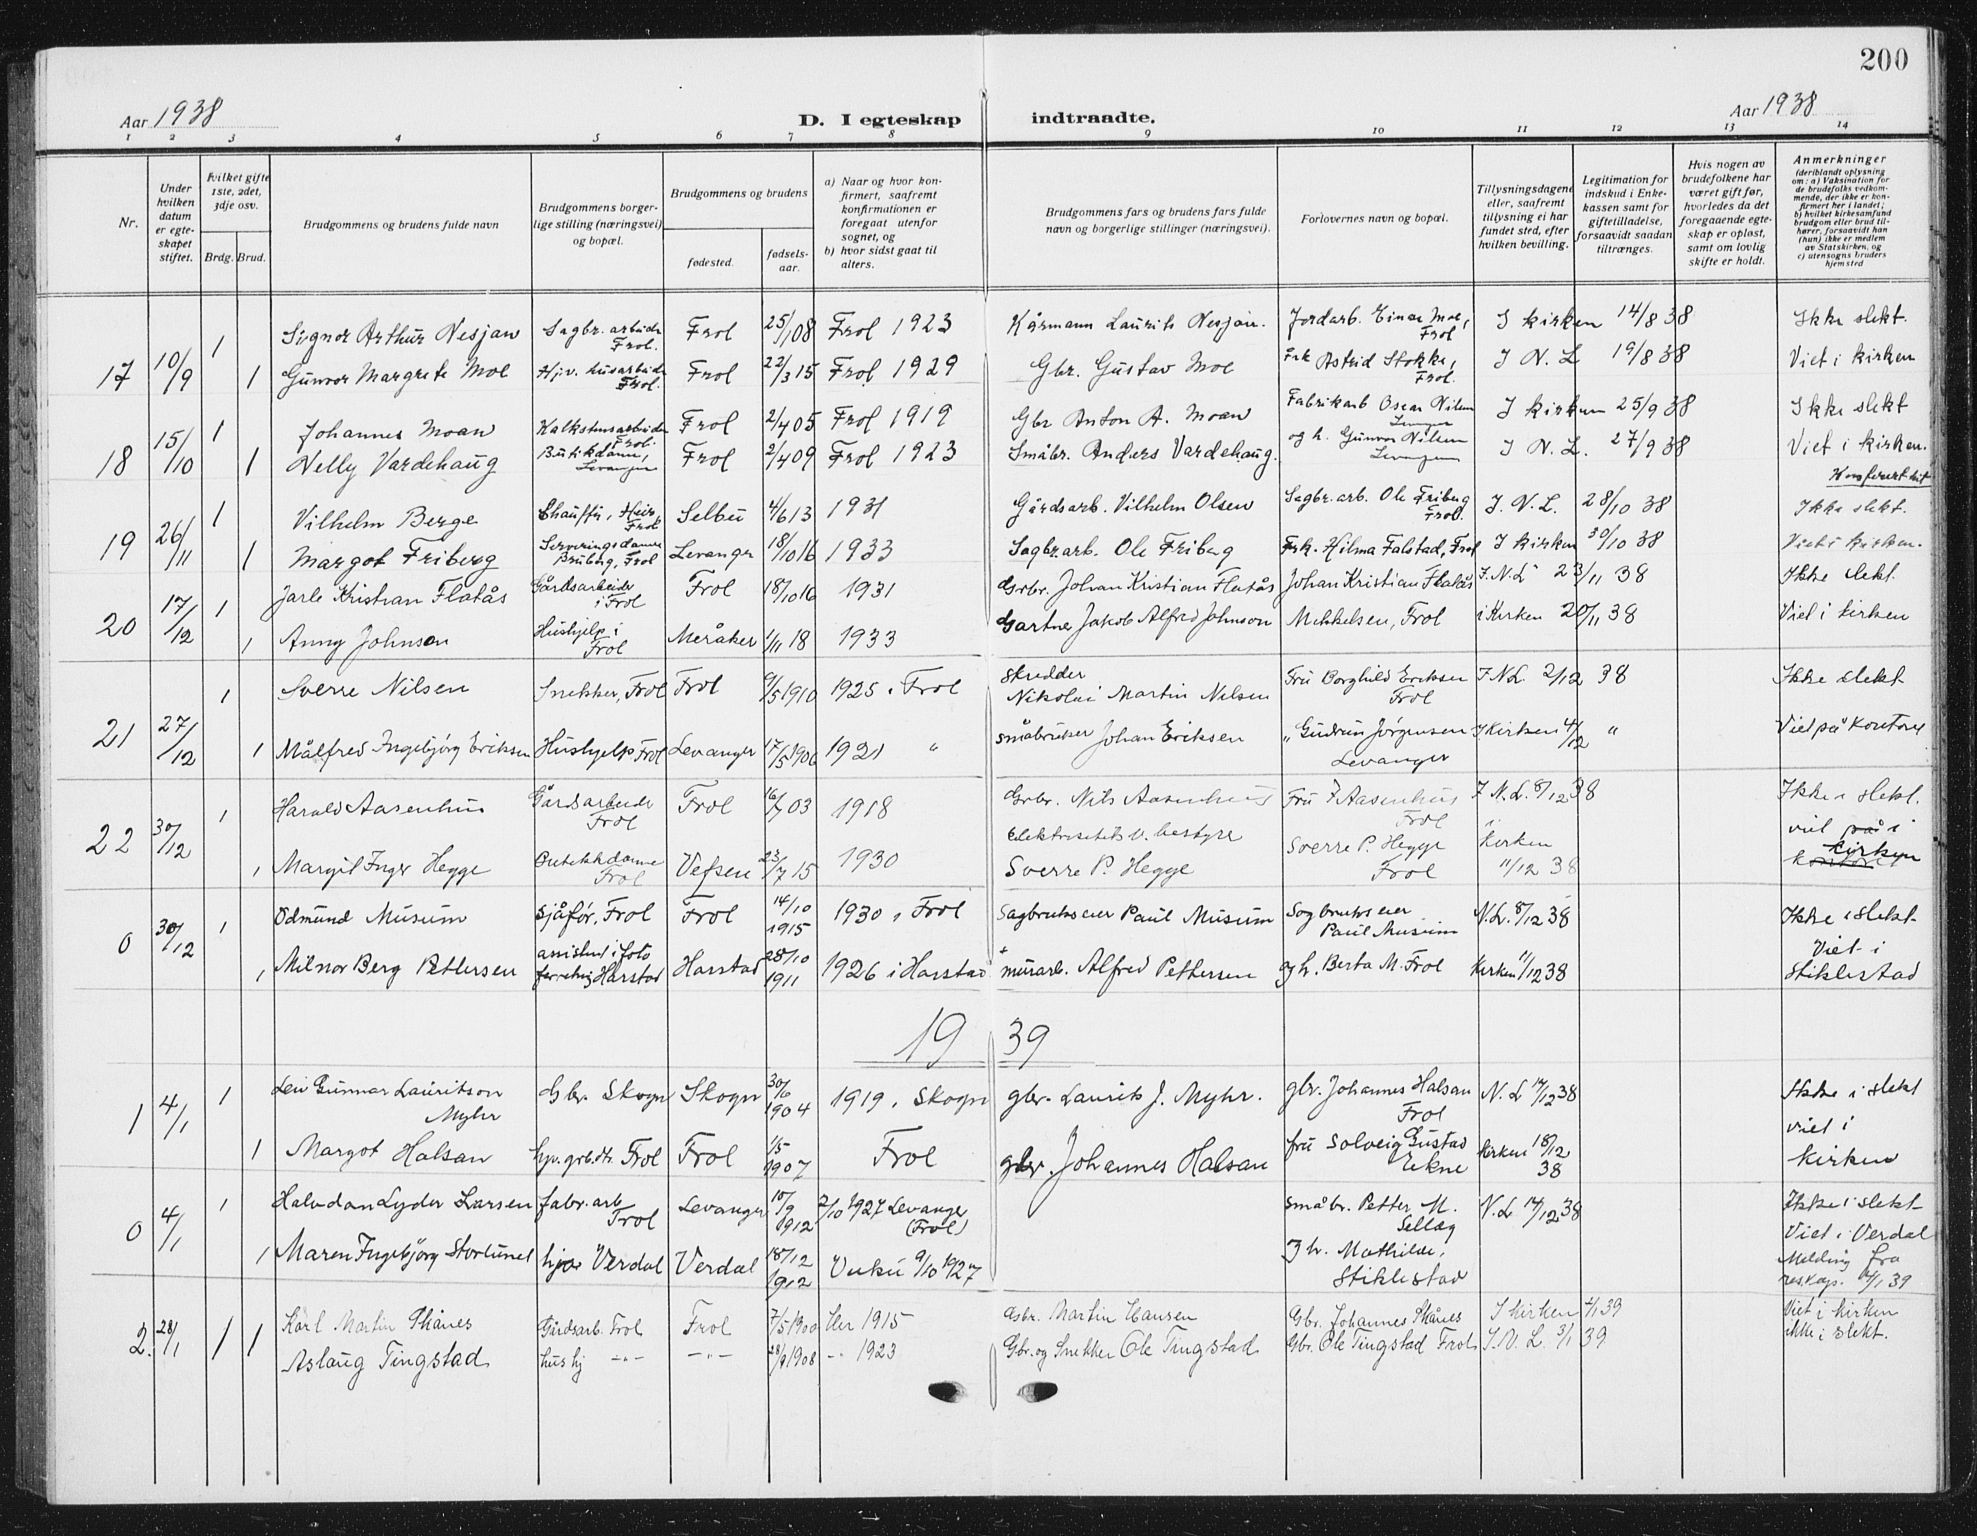 200
Aar 1938
D. I egteskap indtraadte.
Aar 1938
1 2 3 4 5 6 7 8 9 10 11 12 13 14
Nr.
Under hvilken datum er egteskapet stiftet.
Hvilket gifte 1ste, 2det, 3dje osv.
Brdg. Brud.
Brudgommens og brudens fulde navn
Brudgommens borgerlige stilling (næringsvei) og bopæl.
Brudgommens og brudens
fødested.
fødselsaar.
a) Naar og hvor konfirmert, saafremt konfirmationen er foregaat utenfor sognet, og
b) hvor sidst gaat til alters.
Brudgommens fars og brudens fars fulde navn og borgerlige stillinger (næringsvei).
Forlovernes navn og bopæl.
Tillysningsdagene eller, saafremt tillysning ei har fundet sted, efter hvilken bevilling.
Legitimation for indskud i Enkekassen samt for giftetilladelse, forsaavidt saadan tiltrænges.
Hvis nogen av brudefolkene har været gift før, hvorledes da det foregaaende egteskap er opløst, samt om lovlig skifte er holdt.
Anmerkninger
(deriblandt oplysning om: a) Vaksination for de brudefolks vedkommende, der ikke er konfirmert her i landet;
b) hvilket kirkesamfund brudgom eller brud tilhører, forsaavidt han (hun) ikke er medlem av Statskirken, og
c) utensogns bruders hjemsted
1 Signor Arthur Nesjan Sagbr. arbeider Frol. Frol 25/1 08 Frol 1923 Kårmann Laurits Nesjan. Jordarb. Einar Moe, Frol I kirken 14/8 38 Ikke slekt.
17 10/9 1 Gunvor Margrete Moe Hjv. husarbeide Frol. Frol 22/3 15 Frol 1929 Gbr. Gustav Moe Frk Astrid Stokke, Frol. I N. L 19/8 38 Viet i kirken
1 Johannes Moan Kalkstensarbeider Frol. Frol 2/4 05 Frol 1919 Gbr Anton A. Moan Fabrikarb Oscar Nilsen Levanger I kirken 25/9 38 Ikke slekt
18 15/10 1 Nelly Vardehaug Butikkdame, Levanger Frol 2/4 09 Frol 1923 Småbr. Anders Vardehaug. og h. Gunvor Nilsen Levanger I N. L. 27/9 38 Viet i kirken.
Konferert hit
1 Vilhelm Berge Chauffør, Heir, Frol Selbu 4/6 13 1931 Gårdsarb. Vilhelm Olsen Sagbr.arb. Ole Friberg Frol. I. N. L. 28/10 38 Ikke slekt.
19 26/11 1 Margot Friberg Serveringsdame Bruborg, Frol Levanger 18/10 16 1933 Sagbr.arb. Ole Friberg Frk. Hilma Falstad, Frol I kirken 30/10 38 Viet i kirken.
1 Jarle Kristian Flatås Gårdsarbeider i Frol Frol 18/10 16 1931 Grbr. Johan Kristian Flatås Johan Kristian Flatås I. N. L 23/11 38 Ikke slekt.
20 17/12 1 Anny Johnson Hushjelp i Frol Meråker 1/11 18 1933 Gartner Jakob Alfred Johnson Mikkelsen, Frol i Kirken 20/11 38 Viet i kirken
1 Sverre Nilsen Snekker, Frol Frol 9/5 1910 1925 i Frol Skredder Nikolai Martin Nilsen Fru Borghild Eriksen Frol I N L. 2/12 38 Ikke slekt
21 27/12 1 Målfred Ingebjørg Eriksen Hushjelp Frol Levanger 17/5 1906 1921 " Småbruker Johan Eriksen " Gudrun Jørgensen Levanger I Kirken 4/12 " Viet på kontoret
1 Harald Aasenhus Gårdsarbeide Frol Frol 16/7 03 1918 Grbr. Nils Aasenhus Fru F Aasenhus Frol I N. L. 8/12 38 Ikke i slekt.
22 30/12 1 Margit Inger Hegge Butikkdame Frol Vefsen 23/7 15 1930 Elektrisitets v. bestyrer Sverre P. Hegge Sverre P. Hegge Frol Kirken 11/12 38 viet på i kirken kontoret
1 Odmund Musum Sjåfør, Frol Frol 14/10 1915 1930 i Frol Sagbrukseier Paul Musum Sagbrukseier Paul Musum N. L. 8/12 38 Ikke i slekt.
0 30/12 1 Milnor Berg Pettersen assistent i foto forretng Harstad Harstad 28/10 1911 1926 i Harstad murarb. Alfred Pettersen og h. Berta M. Frol Kirken 11/12 38 Viet i Stiklestad
19 39
1 Leiv Gunnar Lauritson Myhr Gbr. Skogn Skogn 30/6 1904 1919 i Skogn gbr. Laurits J. Myhr. gbr. Johannes Halsan Frol N. L 14/12 38 Ikke i slekt
1 4/1 1 Margot Halsan hjv. grb.dtr. Frol Frol 1/5 1907 Frol gbr. Johannes Halsan fru Solveig Gustad Ekne Kirken 18/12 38 viet i kirken
1 Halvdan Lyder Larsen fabr. arb Frol Levanger 10/9 1912 2/10 1927 Levanger (Frol) småbr. Petter M. Sellæg N. L 14/12 38 Ikke i slekt
0 4/1 1 Maren Ingebjørg Storlunet hjv Verdal Verdal 18/12 1912 Vuku 9/10 1927 I h. Mathilde, Stiklestad Viet i Verdal Melding fra res.kap. 14/1 39
1 Karl Martin Skånes Gårdsarb. Frol Frol 7/5 1900 Her 1915 Gbr. Martin Hansen Gbr. Johannes Skånes I kirken 4/1 39 Viet i kirken
2. 28/1 1 Aslaug Tingstad hushj -"- -"- 28/9 1908 -"- 1923 Gbr. og Snekker Ole Tingstad Gbr. Ole Tingstad Frol I. N. L. 3/1 39 ikke i slekt.